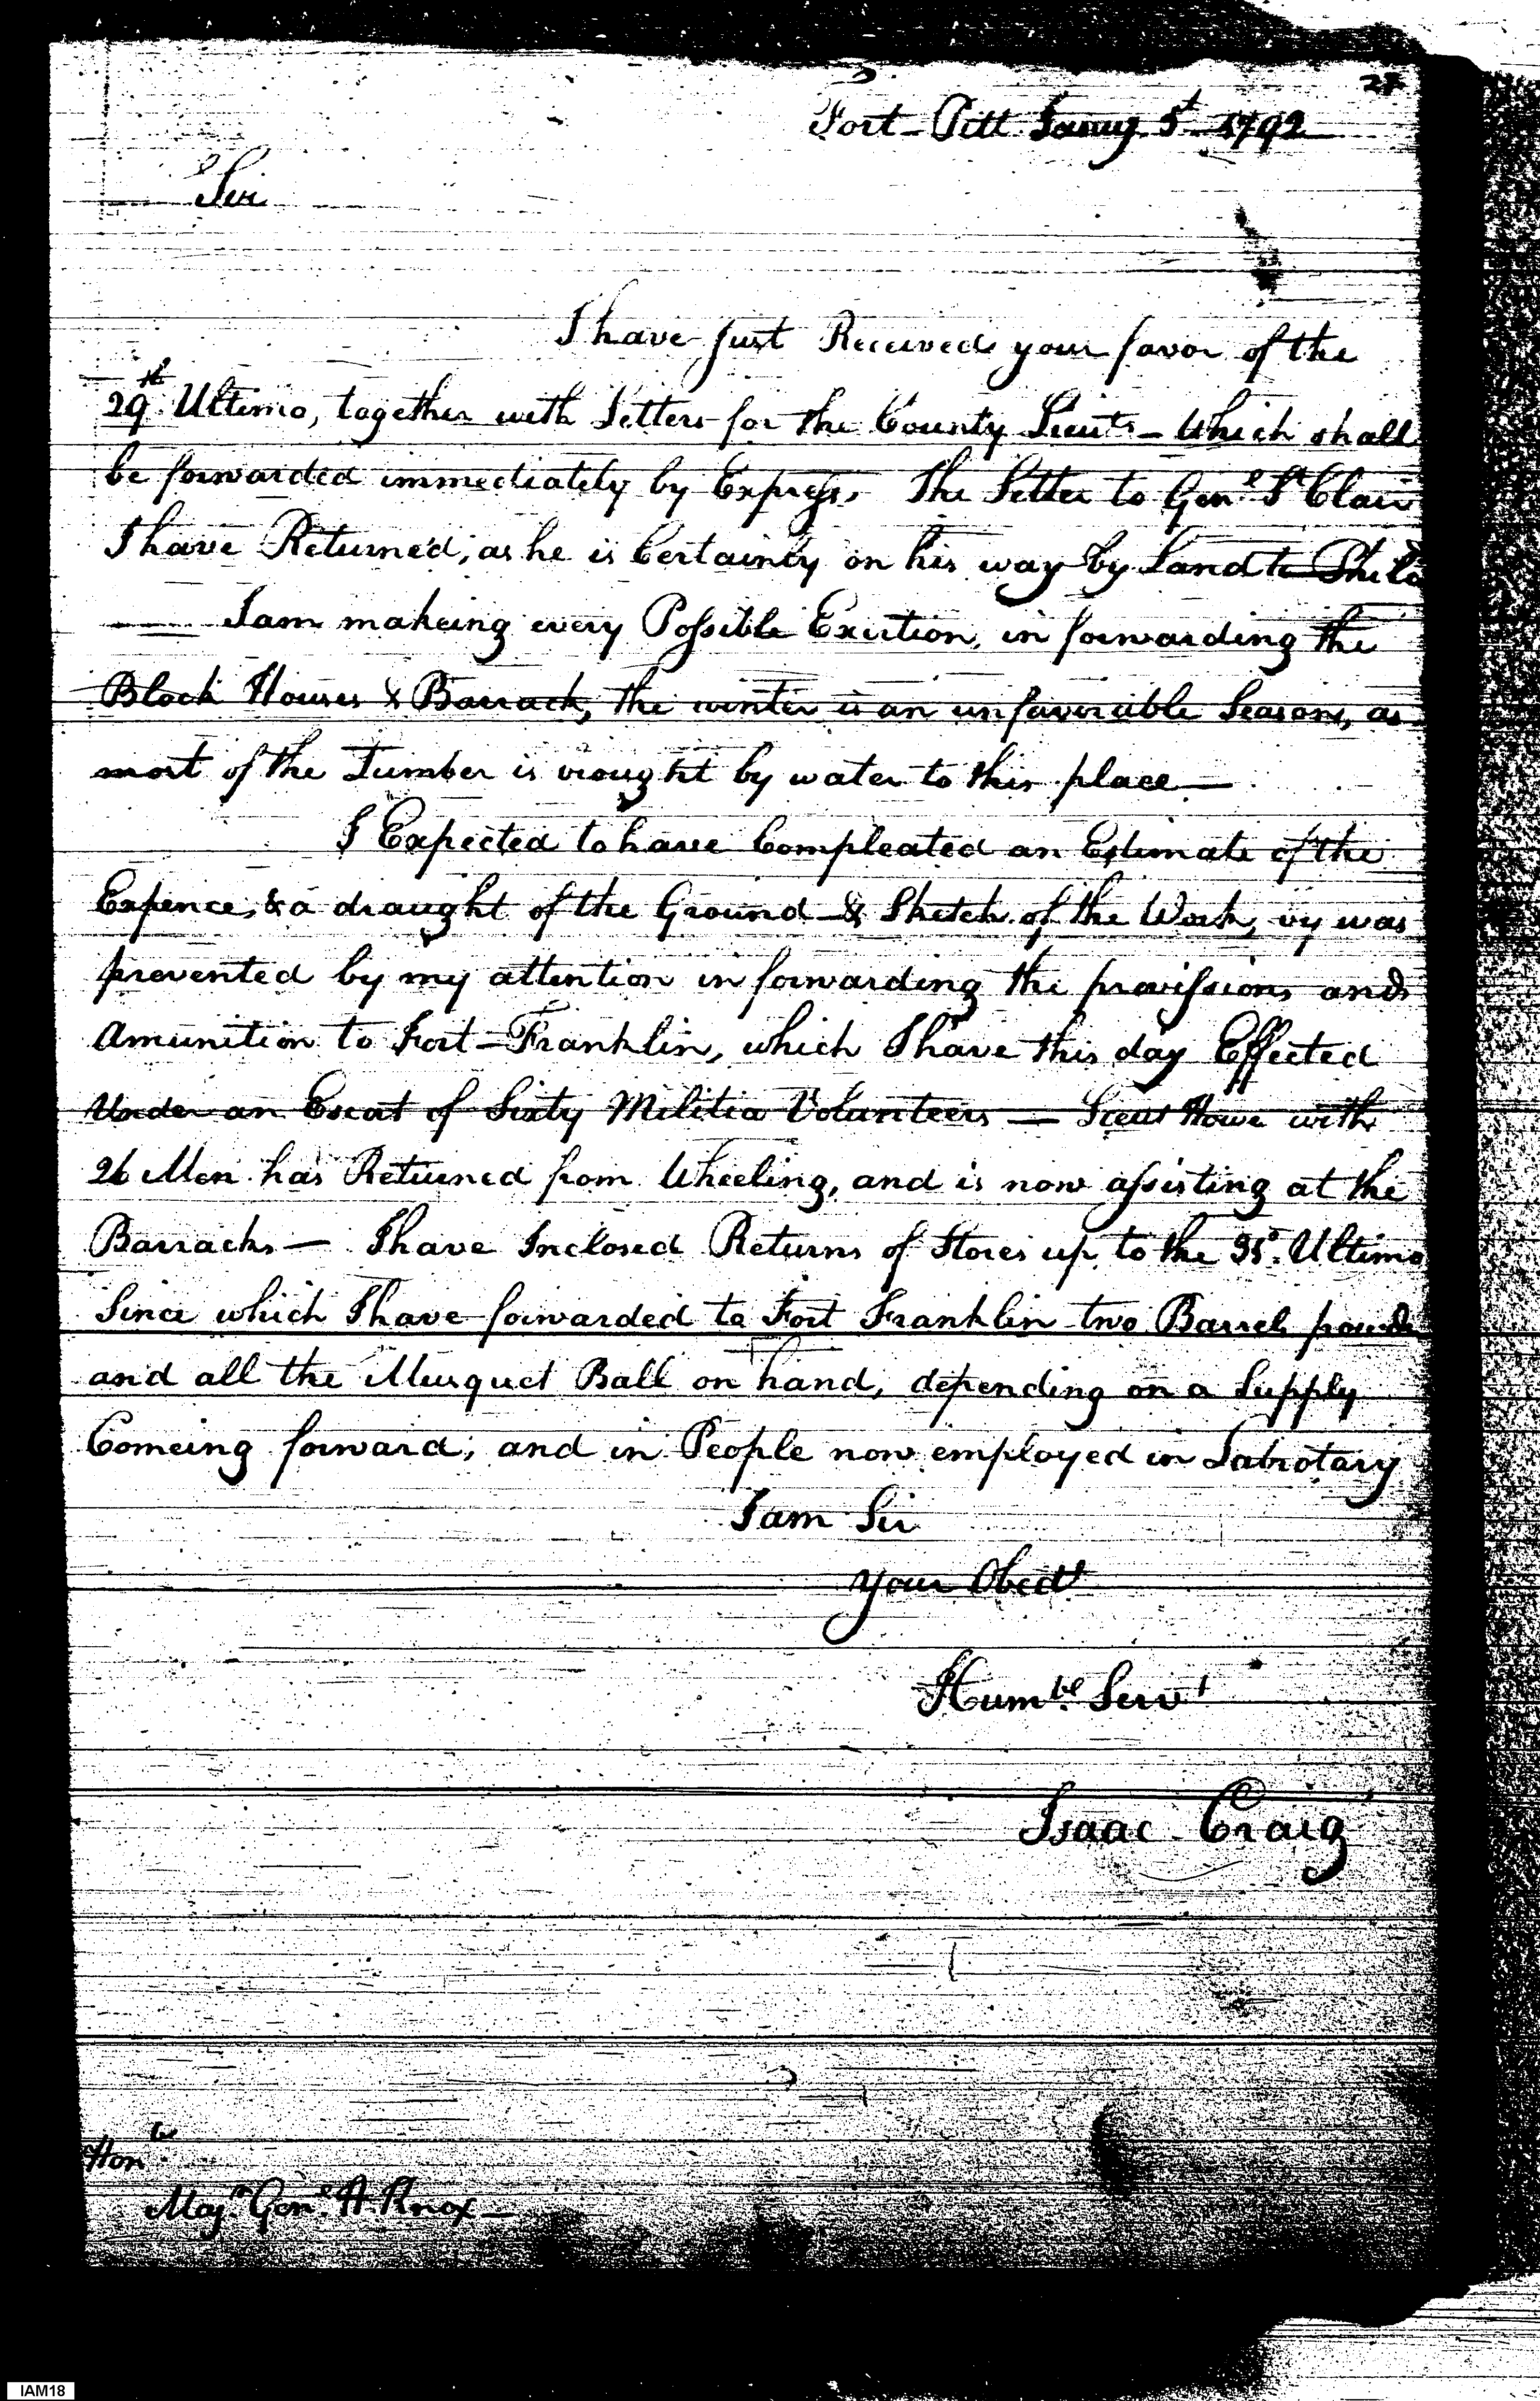 27
Fort-Pitt Jany 5t 1792
Sir
I have just Received your favor of the
29th Ultimo, together with Letters for the County Lieuts - which shall
be forwarded immediately by Express. The Letter to Genl St Clair
I have Returned, as he is Certainly on his way by Land to Phila
I am makeing every Possible Exertion, in forwarding the
Block Houses & Barrack, the winter is an unfavorable Season, as
most of the Timber is brought by water to this place —
I Expected to have Compleated an Estimate of the
Expence, & a draught of the Ground & Sketch of the Work, by was
prevented by my attention in forwarding the provissions and
Amunition to Fort-Franklin, which I have this day Effected
Under an Escort of Sixty Militia Volunteers — Lieut Howe with
26 Men has Returned from Wheeling, and is now assisting at the
Barracks — I have Inclosed Returns of Stores up to the 31st. Ultimo
Since which I have forwarded to Fort Franklin two Barrels powder
and all the Musquet Ball on hand, depending on a Supply
Comeing forward; and in People now employed in Labrotary
I am Sir
your Obedt
Humble Servt
Isaac Craig
Honble
Majr. Genl. H. Knox —
IAM18